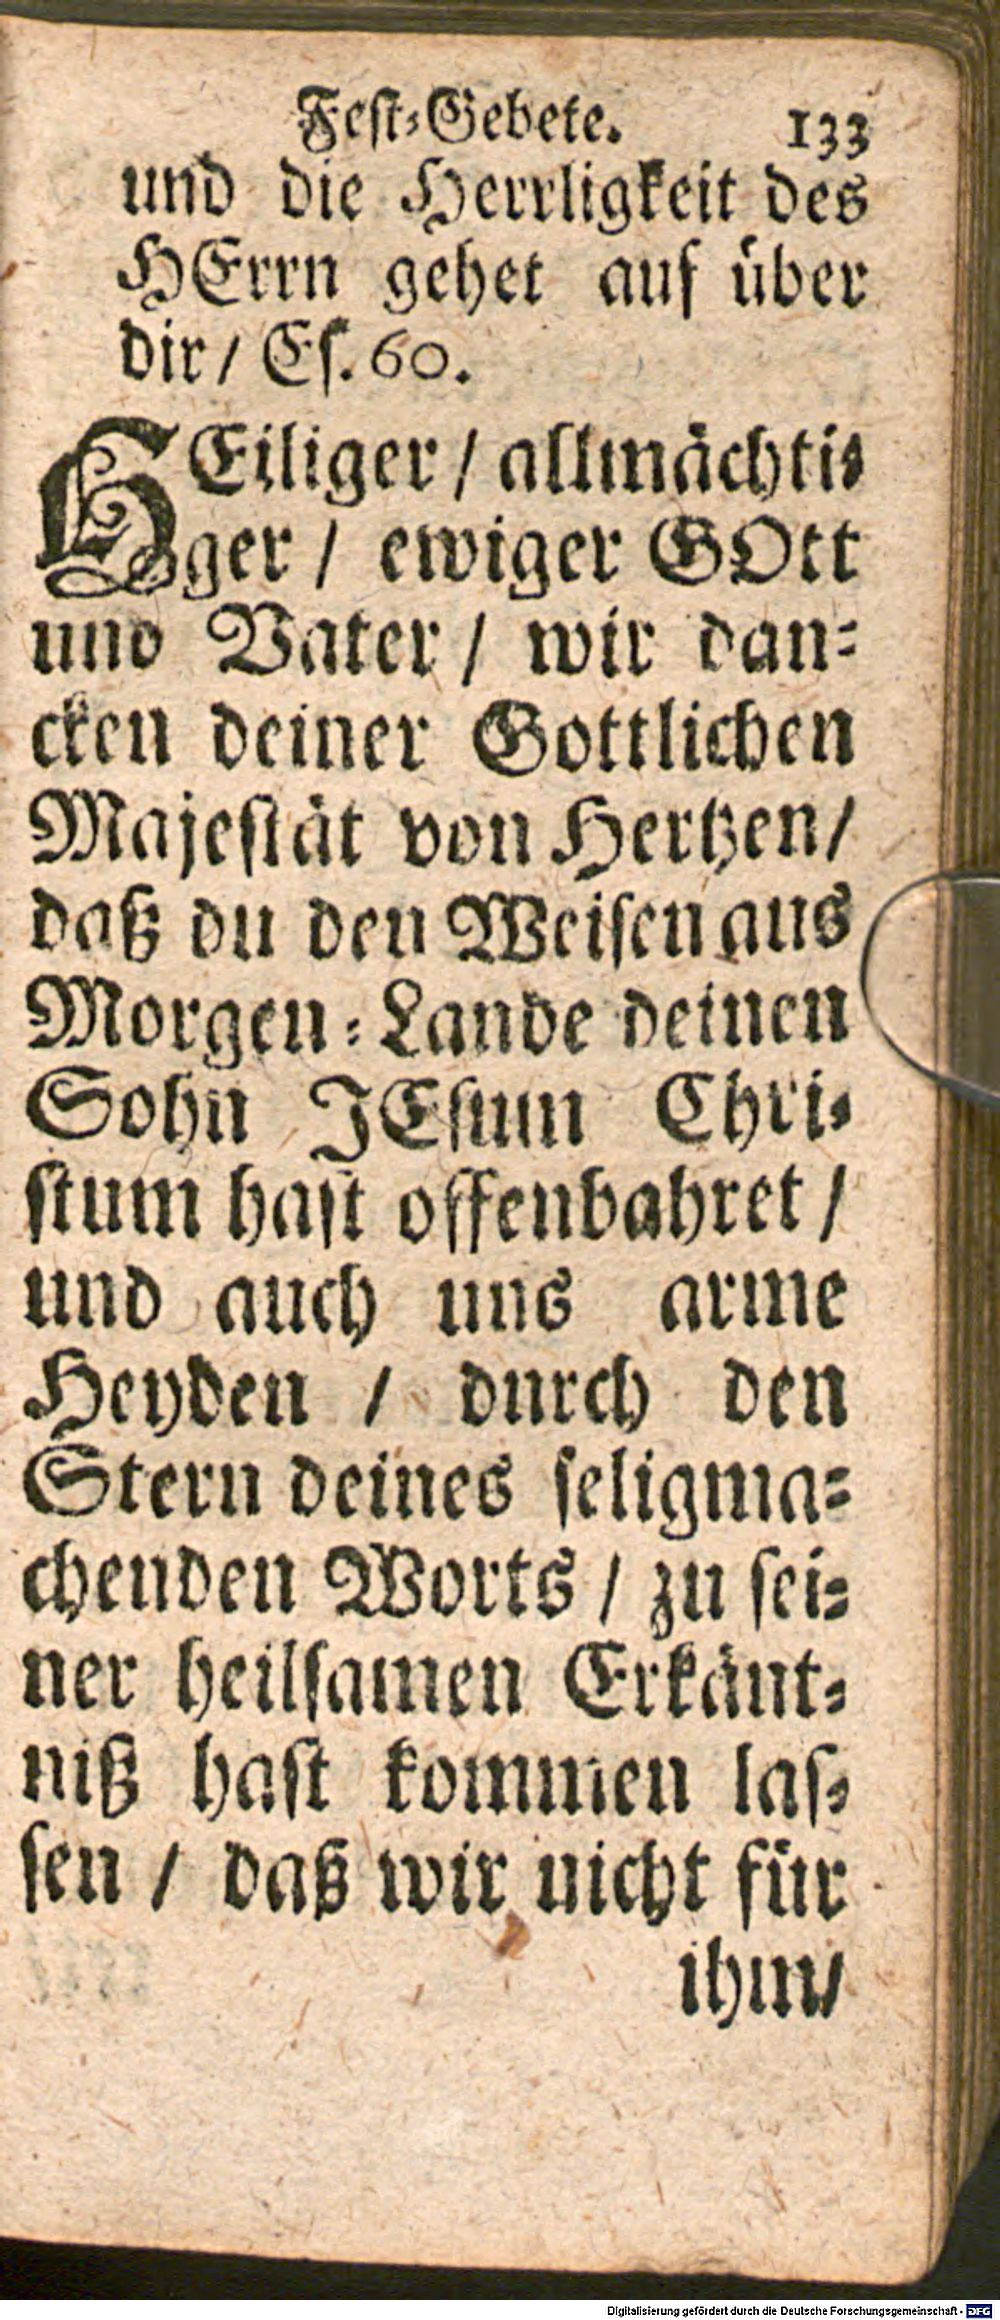 Fest-Gebete. 133
und die Herrligkeit des
HErrn gehet auf über
dir/ Es. 60.
HEiliger/ allmächti-
ger/ ewiger GOtt
und Vater/ wir dan-
cken deiner Gottlichen
Majestät von Hertzen/
daß du den Weisen aus
Morgen-Lande deinen
Sohn JEsum Chri-
stum hast offenbahret/
und auch uns arme
Heyden / durch den
Stern deines seligma-
chenden Worts / zu sei-
ner heilsamen Erkänt-
niß hast kommen las-
sen / daß wir nicht für
ihm/
Digitalisierung gefördert durch die Deutsche Forschungsgemeinschaft - DFG